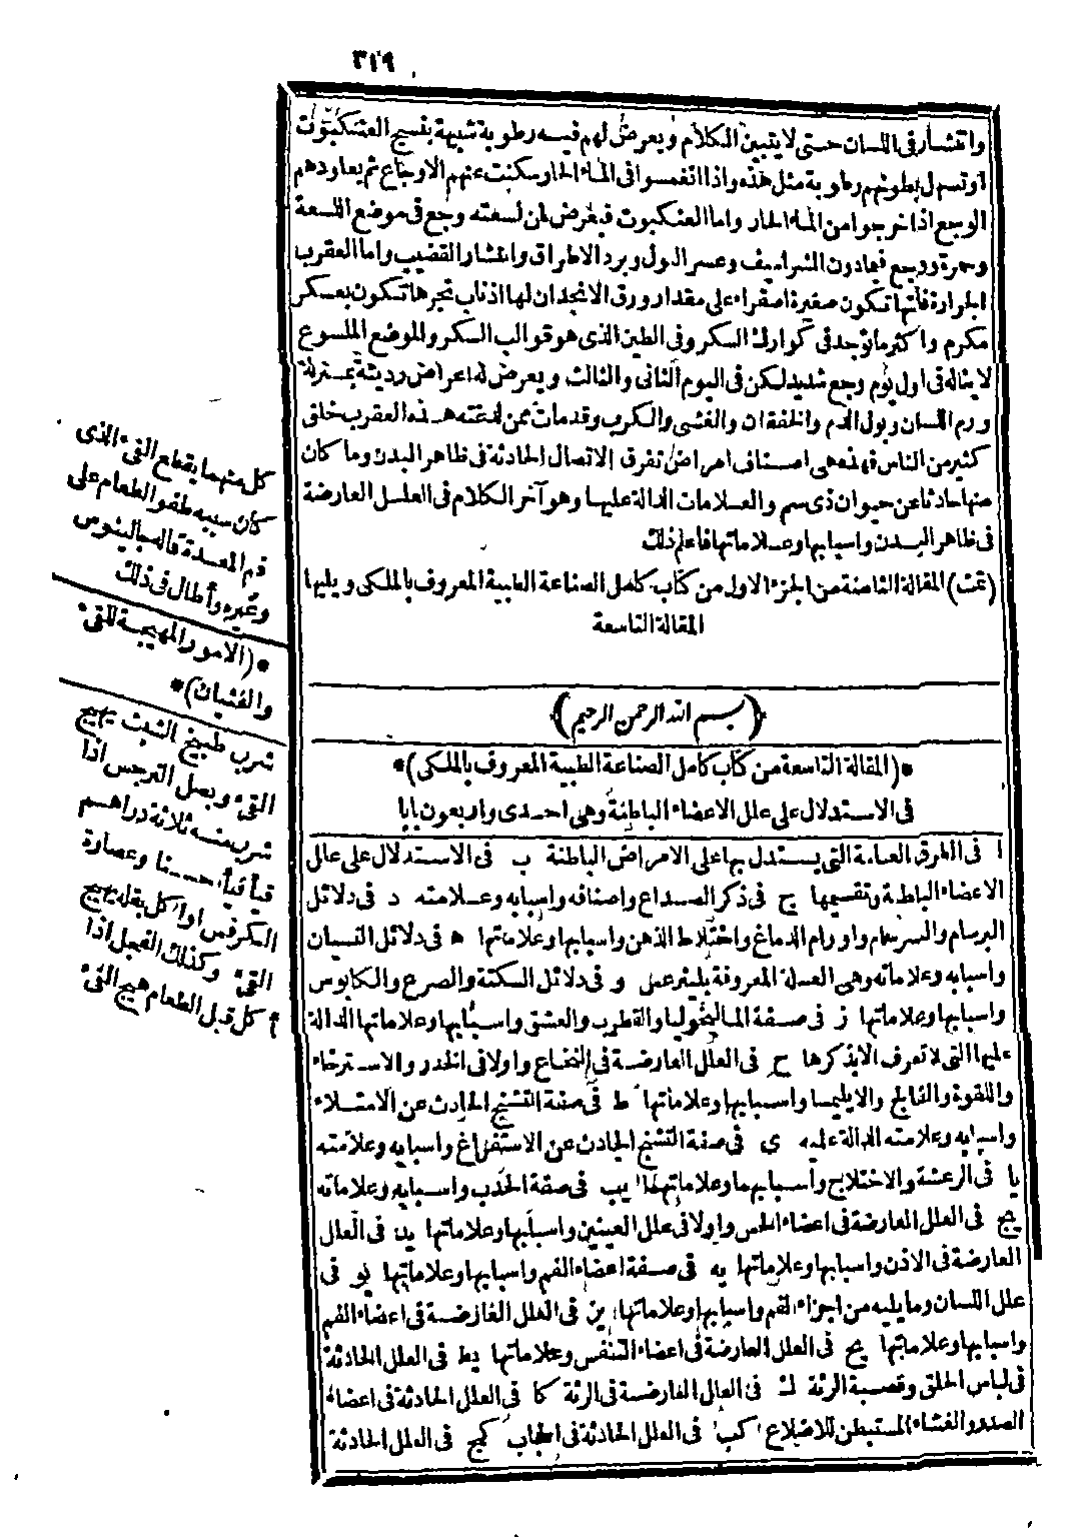 ٣١٩
وانتشار فى اللسان حتى لا يتبين الكلام ويعرض لهم فيه رطوبة شبيهة بنسيج العنكبوت
او تسهل بطونهم رطوبة مثل هذه واذا انغمسوا فى الماء الحار سكنت عنهم الاوجاع ثم يعاودهم
الوجع اذا خرجوا من الماء الحار واما العنكبوت فيعرض لمن لسعته وجع فى موضع اللسعة
وحمرة ووجع فيما دون الشراسيف وعسر البول وبرد الاطراف وانتشار القضيب واما العقرب
الجرارة فانها تكون صغيرة صفراء على مقدار ورق الانجدان لها اذناب تجرها تكون بعسكر
مكرم واكثر ما توجد فى كوارات السكر وفى الطين الذى هو قوالب السكر والموضع الملسوع
لا يناله فى اول يوم وجع شديد لكن فى اليوم الثانى والثالث ويعرض له اعراض رديئة بمنزلة
ورم اللسان وبول الدم والخفقان والغشى والكرب وقد مات ممن لدغته هذه العقرب خلق
كثير من الناس فهذه هى اصناف امراض تفرق الاتصال الحادثة فى ظاهر البدن وما كان
منها حادثا عن حيوان ذى سم والعلامات الدالة عليها وهو آخر الكلام فى العلل العارضة
فى ظاهر البدن واسبابها وعلاماتها فاعلم ذلك
(تمت) المقالة الثامنة من الجزء الاول من كتاب كامل الصناعة الطبية المعروف بالملكى ويليها
المقالة التاسعة
﴿بسم الله الرحمن الرحيم﴾
*(المقالة التاسعة من كتاب كامل الصناعة الطبية المعروف بالملكى)*
فى الاستدلال على علل الاعضاء الباطنة وهى احدى واربعون بابا
ا فى الطرق العامة التى يستدل بها على الامراض الباطنة ب فى الاستدلال على علل
الاعضاء الباطنة وتقسيمها ج فى ذكر الصداع واصنافه واسبابه وعلامته د فى دلائل
البرسام والسرسام واورام الدماغ واختلاط الذهن واسبابها وعلاماتها ه فى دلائل النسيان
واسبابه وعلاماته وهى العلة المعروفة بليثرغس و فى دلائل السكتة والصرع والكابوس
واسبابها وعلاماتها ز فى صفة المالنخوليا والقطرب والعشق واسبابها وعلاماتها الدالة
عليها التى لا تعرف الا بذكرها ح فى العلل العارضة فى النخاع واولا فى الخدر والاسترخاء
واللقوة والفالج والابليميا واسبابها وعلاماتها ط فى صفة التشنج الحادث عن الامتلاء
واسبابه وعلامته الدالة عليه ى فى صفة التشنج الحادث عن الاستفراغ واسبابه وعلامته
يا فى الرعشة والاختلاج وأسبابهما وعلاماتهما يب فى صفة الحدب واسبابه وعلاماته
يج فى العلل العارضة فى اعضاء الحس واولا فى علل العينين واسبابها وعلاماتها يد فى العلل
العارضة فى الاذن واسبابها وعلاماتها يه فى صفة اعضاء الفم واسبابها وعلاماتها يو فى
علل اللسان وما يليه من اجزاء الفم واسبابها وعلاماتها يز فى العلل العارضة فى اعضاء الفم
واسبابها وعلاماتها يح فى العلل العارضة فى اعضاء التنفس وعلاماتها يط فى العلل الحادثة
فى لباس الحلق وقصبة الرئة ك فى العلل العارضة فى الرئة كا فى العلل الحادثة فى اعضاء
الصدر والغشاء المستبطن للاضلاع كب فى العلل الحادثة فى الحجاب كج فى العلل الحادثة
كل منهما يقطع القىء الذى
كان سببه طفو الطعام على
فم المعدة قاله جالينوس
وغيره وأطال فى ذلك
*(الامور المهيجة للقىء
والغثيان)*
شرب طبيخ الشبث يهيج
القىء وبصل النرجس اذا
شرب منه ثلاثة دراهم
قيأ قيأ حسنا وعصارة
الكرفس اوا كل بقله يهيج
القىء وكذلك الفجل اذا
أكل قبل الطعام هيج القىء